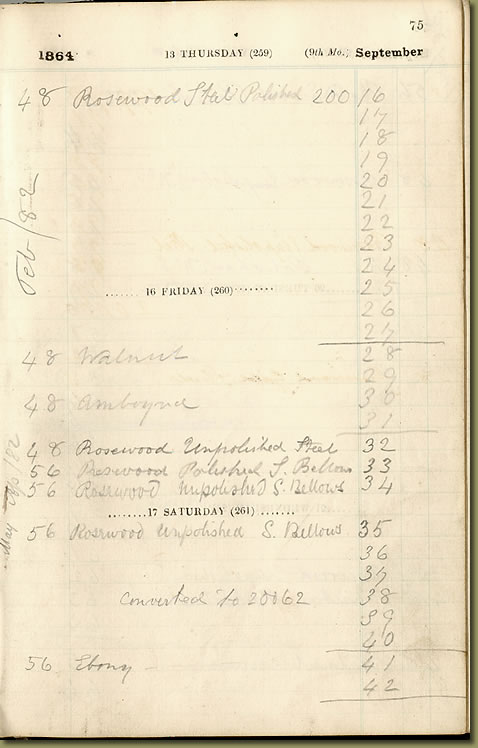 75
1864 13 THURSDAY (259) (9th Mo.) September
48 Rosewood Steel Polished 200 16
17
18
19
20
21
Feb/82
22
23
24
25
16 FRIDAY (260)
26
27
48 Walnut 28
29
48 Amboyna 30
31
48 Rosewood Unpolished Steel 32
56 Rosewood Polished S. Bellows 33
56 Rosewood Unpolished S. Bellows 34
May /82
17 SATURDAY (261)
56 Rosewood Unpolished S. Bellows 35
36
37
Converted to 20062 38
39
40
56 Ebony — 41
42